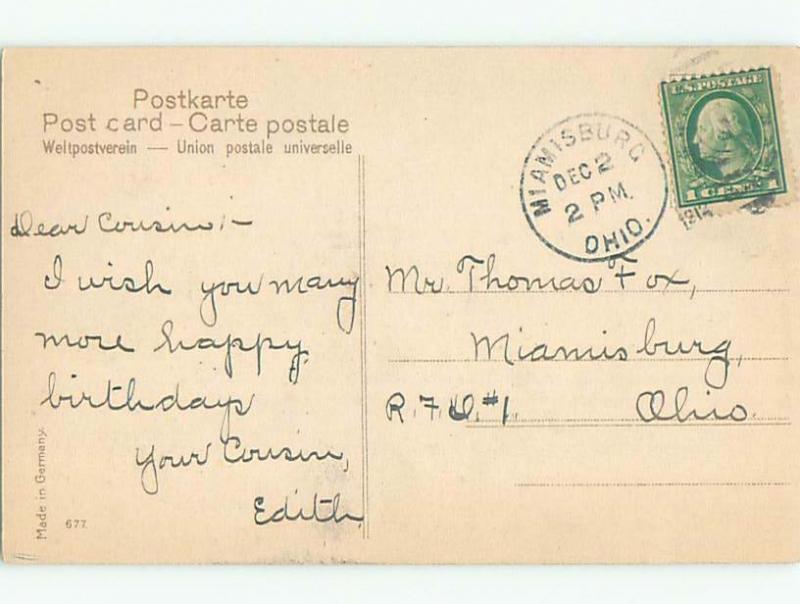 Postkarte
Post card – Carte postale
Weltpostverein — Union postale universelle
Dear Cousin:–
I wish you many
more happy
birthdays
Your Cousin,
Edith
Made in Germany.
677.
MIAMISBURG
DEC 2
2 PM.
OHIO.
U.S. POSTAGE
1 CENT 1
Mr. Thomas Fox,
Miamisburg,
R.F.D. #1. Ohio.